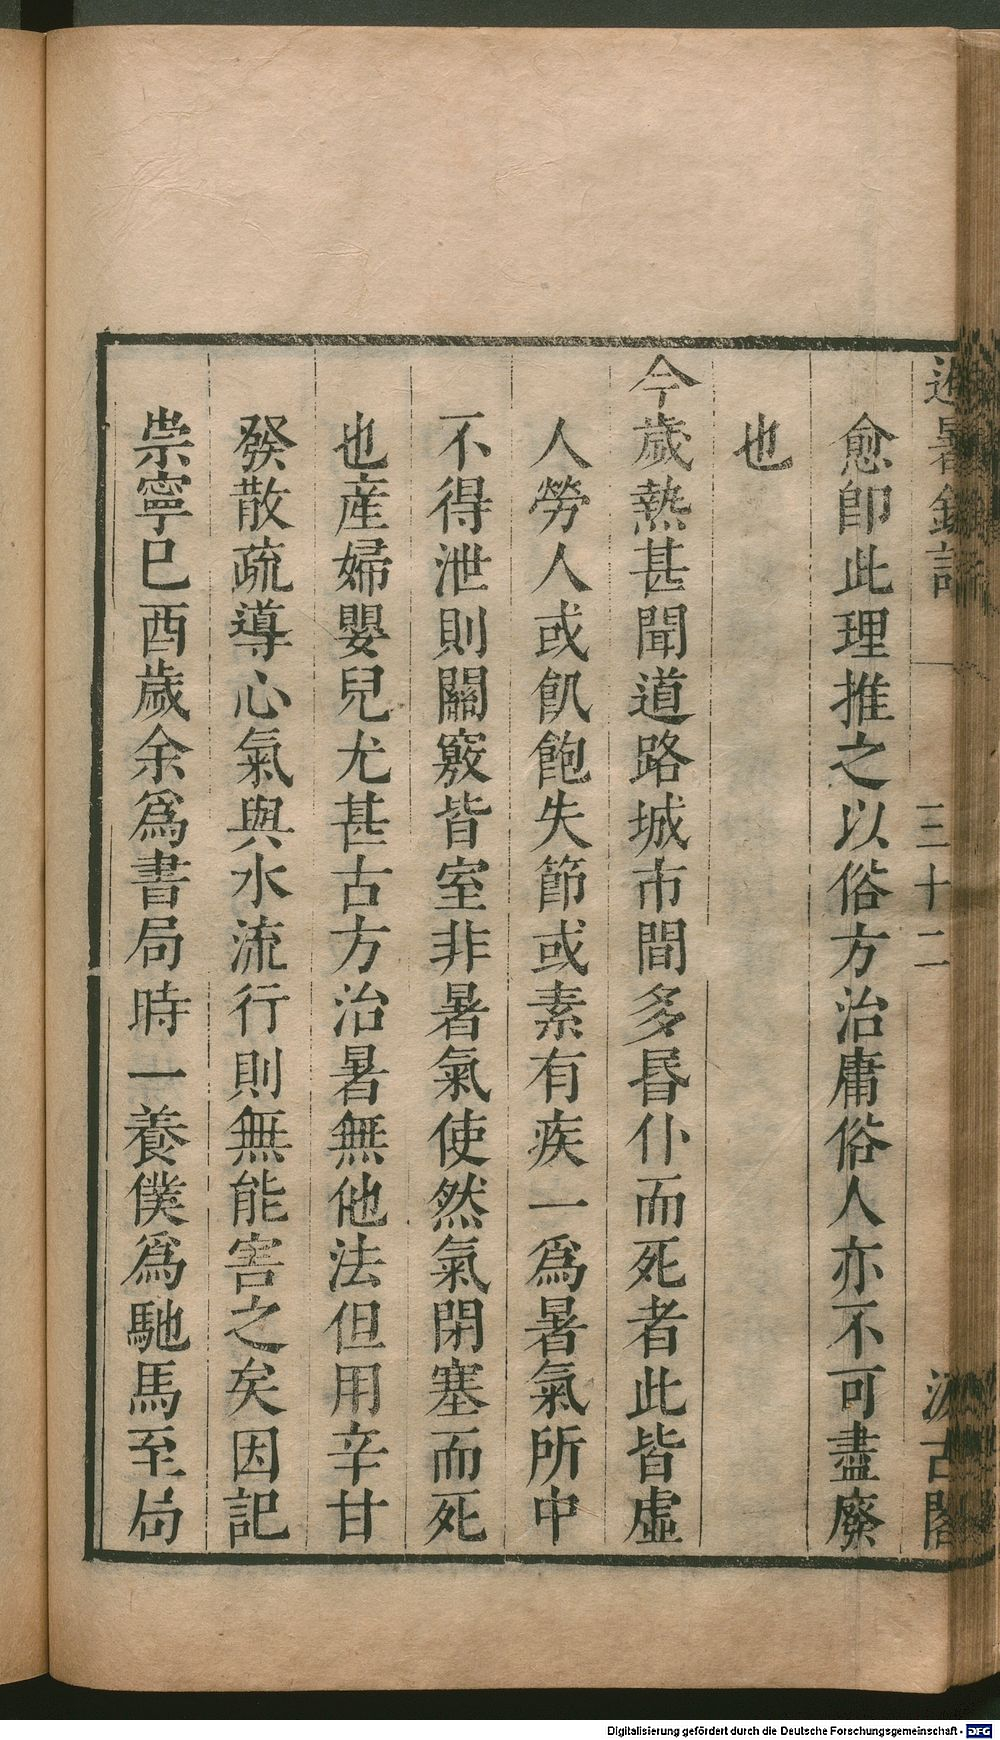 避暑錄話 三十二 汲古閣
愈卽此理推之以俗方治庸俗人亦不可盡廢
也
今歲熱甚聞道路城市間多昬仆而死者此皆虛
人勞人或飢飽失節或素有疾一爲暑氣所中
不得泄則關竅皆窒非暑氣使然氣閉塞而死
也產婦嬰兒尤甚古方治暑無他法但用辛甘
發散疏導心氣與水流行則無能害之矣因記
崇寧巳酉歲余爲書局時一養僕爲馳馬至局
Digitalisierung gefördert durch die Deutsche Forschungsgemeinschaft - DFG